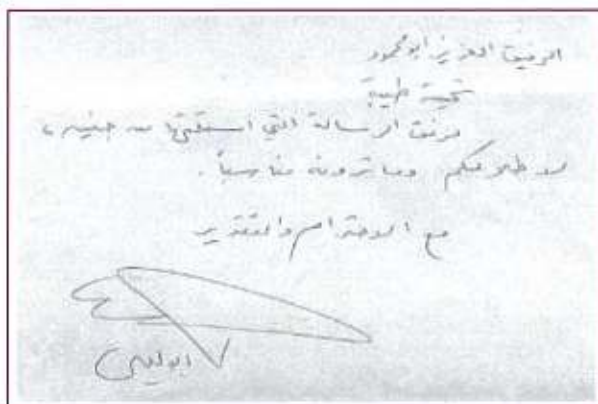 الرفيق العزيز ابو محمود
تحية طيبة
مرفق الرسالة التي استلمتها من جنيف،
لاطلاعكم وما ترونه مناسباً.
مع الاحترام والتقدير
ابو ليلى